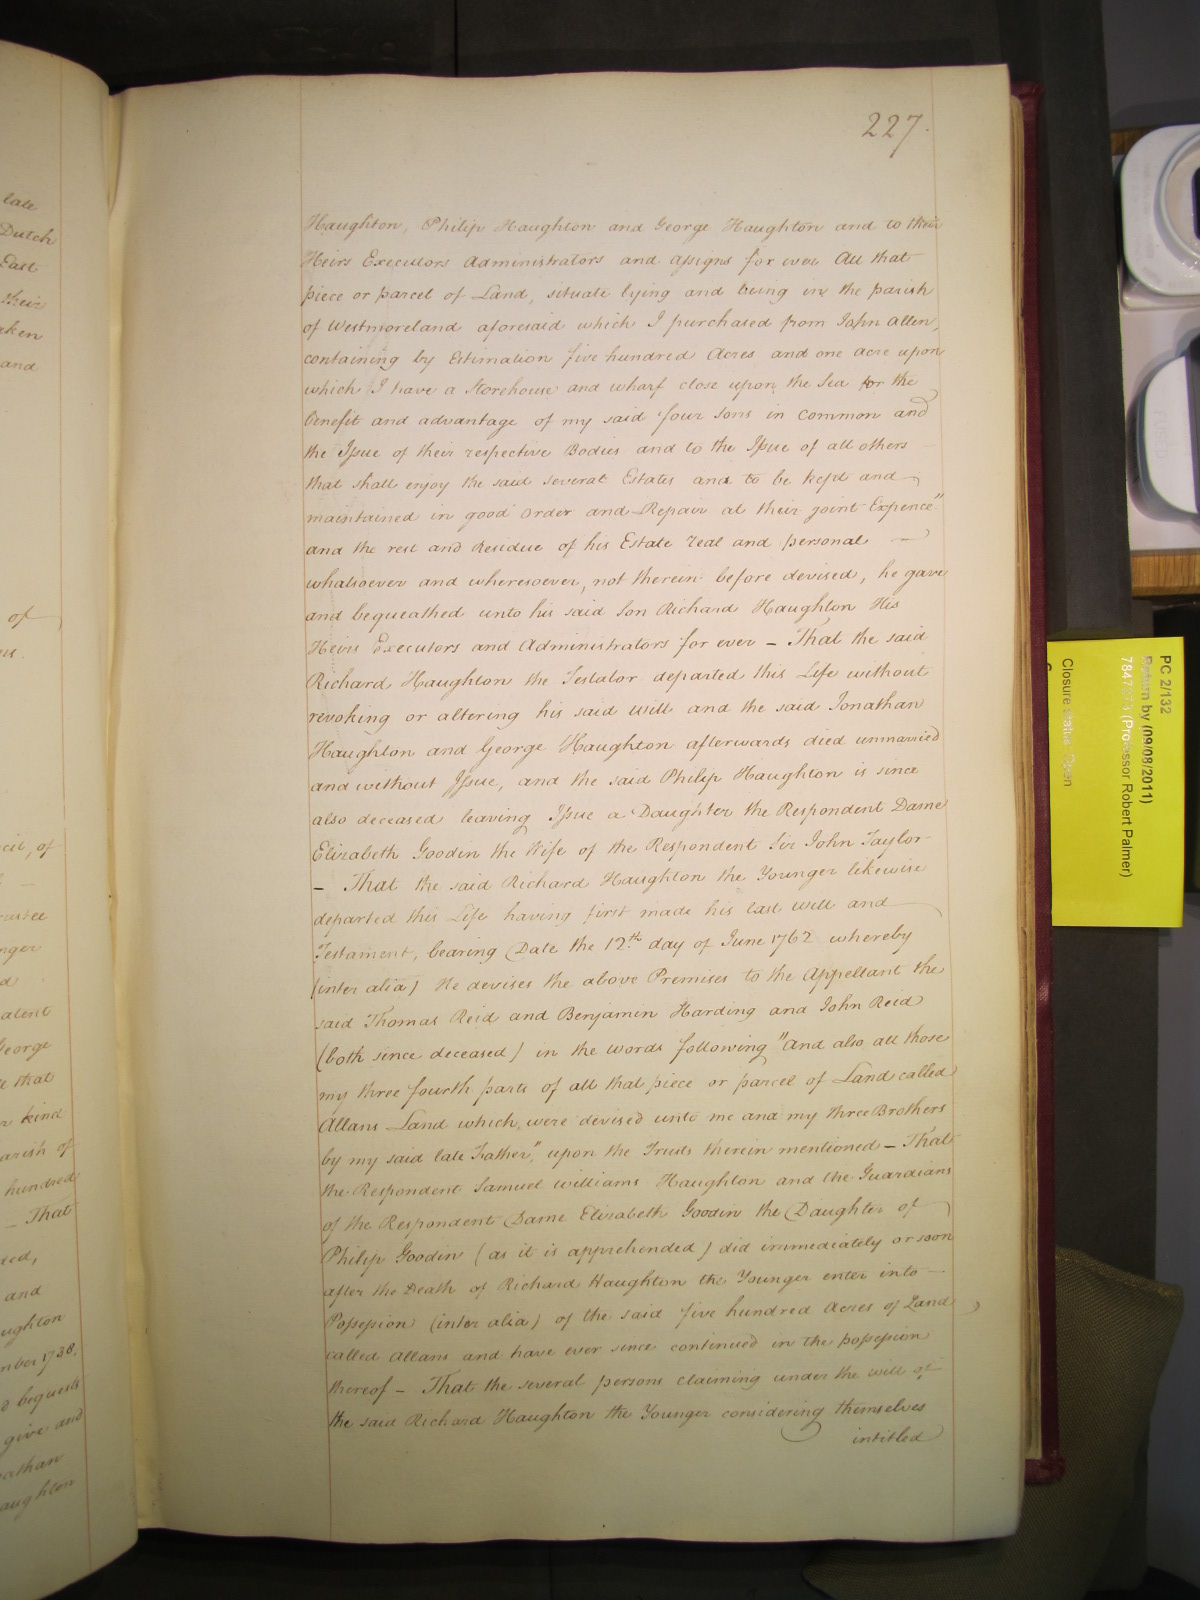 227.
Haughton, Philip Haughton and George Haughton and to their
Heirs Executors Administrators and assigns for ever All that
piece or parcel of Land, situate lying and being in the parish
of Westmoreland aforesaid which I purchased from John Allen,
containing by Estimation five hundred Acres and one acre upon
which I have a Storehouse and wharf close upon the Sea for the
benefit and advantage of my said four sons in common and
the Issue of their respective Bodies and to the Issue of all others
that shall enjoy the said several Estates and to be kept and
maintained in good order and Repair at their joint Expence"
and the rest and Residue of his Estate real and personal —
whatsoever and wheresoever, not therein before devised, he gave
and bequeathed unto his said Son Richard Haughton His
Heirs Executors and Administrators for ever – That the said
Richard Haughton the Testator departed this Life without
revoking or altering his said will and the said Jonathan
Haughton and George Haughton afterwards died unmarried
and without Issue, and the said Philip Haughton is since
also deceased leaving Issue a Daughter the Respondent Dame
Elizabeth Goodin the Wife of the Respondent Sir John Taylor
– That the said Richard Haughton the Younger likewise
departed this Life having first made his last will and
Testament, bearing Date the 12th day of June 1762 whereby
(inter alia) He devises the above Premises to the Appellant the
said Thomas Reid and Benjamin Harding and John Reid
(both since deceased) in the words following "And also all those
my three fourth parts of all that piece or parcel of Land called
Allans Land which were devised unto me and my three Brothers
by my said late Father", upon the Trusts therein mentioned – That
the Respondent Samuel Williams Haughton and the Guardians
of the Respondent Dame Elizabeth Goodin the Daughter of
Philip Goodin (as it is apprehended) did immediately or soon
after the Death of Richard Haughton the Younger enter into
Possession (inter alia) of the said five hundred Acres of Land
called Allans and have ever since continued in the possession
thereof – That the several persons claiming under the will of
the said Richard Haughton the Younger considering themselves
intitled
late
Dutch
East
their
aken
and
of
of
ated
George
that
kind
arish of
hundred
– That
and
ughton
mber 1738,
bequests
give and
nathan
aughton
PC 2/132
Return by (09/08/2011)
(Professor Robert Palmer)
Closure status: Open